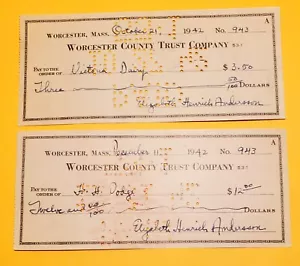 WORCESTER, MASS. October 21 1942 No. 943 A
WORCESTER COUNTY TRUST COMPANY 53-1
PAY TO THE
ORDER OF Victoria Dairy $3.50
Three 50/100 DOLLARS
Elizabeth Henrich Andersson
WORCESTER, MASS. December 11 1942 No. 943 A
WORCESTER COUNTY TRUST COMPANY 53-1
PAY TO THE
ORDER OF H. Dodge $12.00
Twelve and 00/100 DOLLARS
Elizabeth Henrich Andersson